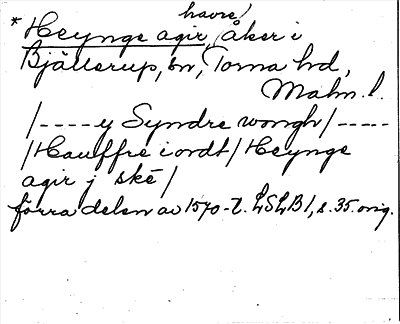 havre/
* Heynge agir, åker i
Bjällerup, sn, Torna hd,
Malm. l.
/----y Syndre wongh/-----
/Hauffre iordt/Heynge
agir j skē/
förra delen av 1570-t. LSLB1, s. 35. orig.